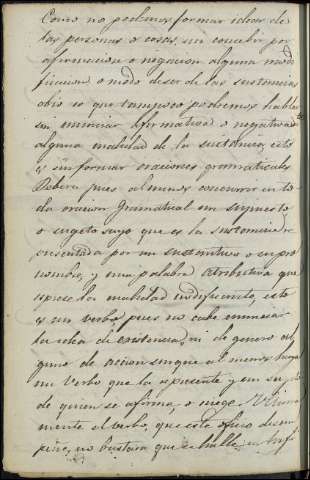 Como no podemos formar ideas de
las personas o cosas, sin concebir por
afirmacion o negacion alguna modi
ficacion o modo de ser de las sustancias
obio es que tampoco podremos hablar
sin enunciar afirmativa o negativa
alguna cualidad de la sustancia, esto
es sin formar oraciones gramaticales
Debera pues al menos concurrir en to
da oracion gramatical un supuesto
o sugeto suyo que es la sustancia re
presentada por un sustantivo o un pro
nombre, y una palabra atributiva que
esprese la cualidad modificando, esto
es un verbo, pues no cabe enunciar
la idea de existencia, ni de genero al
guno de accion sin que al menos haya
un verbo que la represente y un suge
de quien se afirma, o niega.
mente el verbo, que este oficio desem
peñe, no bastara que se halle en Inf